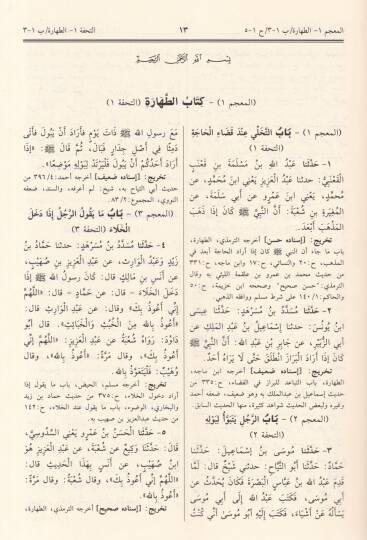 المعجم ١- الطهارة/ب ١-٣/ح ١-٥
١٣
التحفة ١- الطهارة/ب ١-٣
بِسْمِ اللهِ الرَّحْمٰنِ الرَّحِيْمِ
(المعجم ١) - كِتَابُ الطَّهَارَةِ (التحفة ١)
(المعجم ١) - بَابُ التَّخَلِّي عِنْدَ قَضَاءِ الْحَاجَةِ
(التحفة ١)
١- حَدَّثَنَا عَبْدُ اللهِ بْنُ مَسْلَمَةَ بْنِ قَعْنَبٍ
الْقَعْنَبِيُّ: حَدَّثَنَا عَبْدُ الْعَزِيزِ يَعْني ابنَ مُحمَّدٍ، عن
مُحمَّدٍ، يَعْني ابنَ عَمْرٍو عن أبي سَلَمَةَ، عن
المُغِيرَةِ بنِ شُعْبَةَ: أنَّ النَّبِيَّ ﷺ كَانَ إذَا ذَهَبَ
المَذْهَبَ أبْعَدَ.
تخريج: [إسناده حسن] أخرجه الترمذي، الطهارة،
باب ما جاء أن النبي ﷺ كان إذا أراد الحاجة أبعد في
المذهب، ح:٢٠ والنسائي، ح:١٧ وابن ماجه، ح:٣٣١
من حديث محمد بن عمرو بن علقمة الليثي به وقال
الترمذي: "حسن صحيح" وصححه ابن خزيمة، ح:٥٠
والحاكم:١/ ١٤٠ على شرط مسلم ووافقه الذهبي.
٢- حَدَّثَنَا مُسَدَّدُ بْنُ مُسَرْهَدٍ: حَدَّثَنَا عِيسَى
ابنُ يُونُسَ: حدثنا إِسْمَاعِيلُ بنُ عَبْدِ المَلِكِ عن
أبي الزُّبَيْرِ، عن جَابِرِ بْنِ عَبْدِ اللهِ: أنَّ النَّبِيَّ ﷺ
كَانَ إذَا أَرَادَ الْبَرَازَ انْطَلَقَ حَتَّى لَا يَرَاهُ أحَدٌ.
تخريج: [إسناده ضعيف] أخرجه ابن ماجه،
الطهارة، باب التباعد للبراز في الفضاء، ح:٣٣٥ من
حديث إسماعيل بن عبدالملك به وهو ضعيف ضعفه الجمهور
وغيره ولبعض الحديث شواهد كثيرة، منها الحديث السابق.
(المعجم ٢) - بَابُ الرَّجُلِ يَتَبَوَّأُ لِبَوْلِهِ
(التحفة ٢)
٣- حَدَّثَنَا مُوسَى بنُ إسْمَاعِيلَ: حَدَّثَنَا
حَمَّادٌ: حَدَّثَنَا أبُو التَّيَّاحِ: حدَّثني شَيْخٌ قال: لَمَّا
قَدِمَ عَبْدُ اللهِ بنُ عَبَّاسٍ الْبَصْرَةَ فكَانَ يُحَدَّثُ عن
أبي مُوسَى، فَكَتَبَ عَبْدُ اللهِ إلى أبي مُوسَى
يَسْأَلُهُ عن أشْيَاءَ، فَكَتَبَ إلَيْهِ أبُو مُوسَى أنِّي كُنْتُ
مَعَ رسولِ اللهِ ﷺ ذَاتَ يَوْمٍ فَأَرَادَ أنْ يَبُولَ فأتَى
دَمِثًا في أصْلِ جِدَارٍ فَبَالَ، ثُمَّ قال ﷺ: «إذَا
أرَادَ أحَدُكُمْ أنْ يَبُولَ فَلْيَرْتَدْ لِبَوْلِهِ مَوْضِعًا».
تخريج: [إسناده ضعيف] أخرجه أحمد:٤/ ٣٩٦ من
حديث أبي التياح به، شيخ: لم أعرفه، والسند، ضعفه
النووي، المجموع:٢/ ٨٣.
(المعجم ٣) - بَابُ مَا يَقُولُ الرَّجُلُ إذَا دَخَلَ
الْخَلَاءَ (التحفة ٣)
٤- حَدَّثَنَا مُسَدَّدُ بْنُ مُسَرْهَدٍ: حدثنا حَمَّادُ بنُ
زَيْدٍ وَعَبْدُ الْوَارِثِ، عن عَبْدِ الْعَزِيزِ بنِ صُهَيْبٍ،
عن أنَسِ بن مَالِكٍ قال: كَانَ رسولُ اللهِ ﷺ إذَا
دَخَلَ الْخَلَاءَ - قال: عن حَمَّادٍ - قال: «اللَّهُمَّ
إنِّي أعُوذُ بِكَ». وقال: عن عَبْدِ الْوَارِثِ قال:
«أعُوذُ بِاللهِ مِنَ الْخُبُثِ وَالْخَبَائِثِ». قال أبُو
دَاوُدَ: رَوَاهُ شُعْبَةُ عن عَبْدِ الْعَزِيزِ: «اللَّهُمَّ
إنِّي أعُوذُ بِكَ»، وقال مَرَّةً: «أعُوذُ بِاللهِ»، وقال
وُهَيْبٌ: فَلْيَتَعَوَّذْ بِاللهِ.
تخريج: أخرجه مسلم، الحيض، باب ما يقول إذا
أراد دخول الخلاء، ح:٣٧٥ من حديث حماد بن زيد
والبخاري، الوضوء، باب ما يقول عند الخلاء، ح:١٤٢
من حديث عبدالعزيز بن صهيب به.
٥- حَدَّثَنَا الْحَسَنُ بْنُ عَمْرٍو يَعْني السَّدُوسِيَّ،
قال: حَدَّثَنَا وَكِيعٌ عن شُعْبَةَ، عن عَبْدِ الْعَزِيزِ هُوَ
ابنُ صُهَيْبٍ، عن أنَسٍ بِهَذَا الْحَدِيثِ قال:
«اللَّهُمَّ إنِّي أعُوذُ بِكَ»، وقال شُعْبَةُ: وقال مَرَّةً:
«أعُوذُ بِاللهِ».
تخريج: [إسناده صحيح] أخرجه الترمذي، الطهارة،